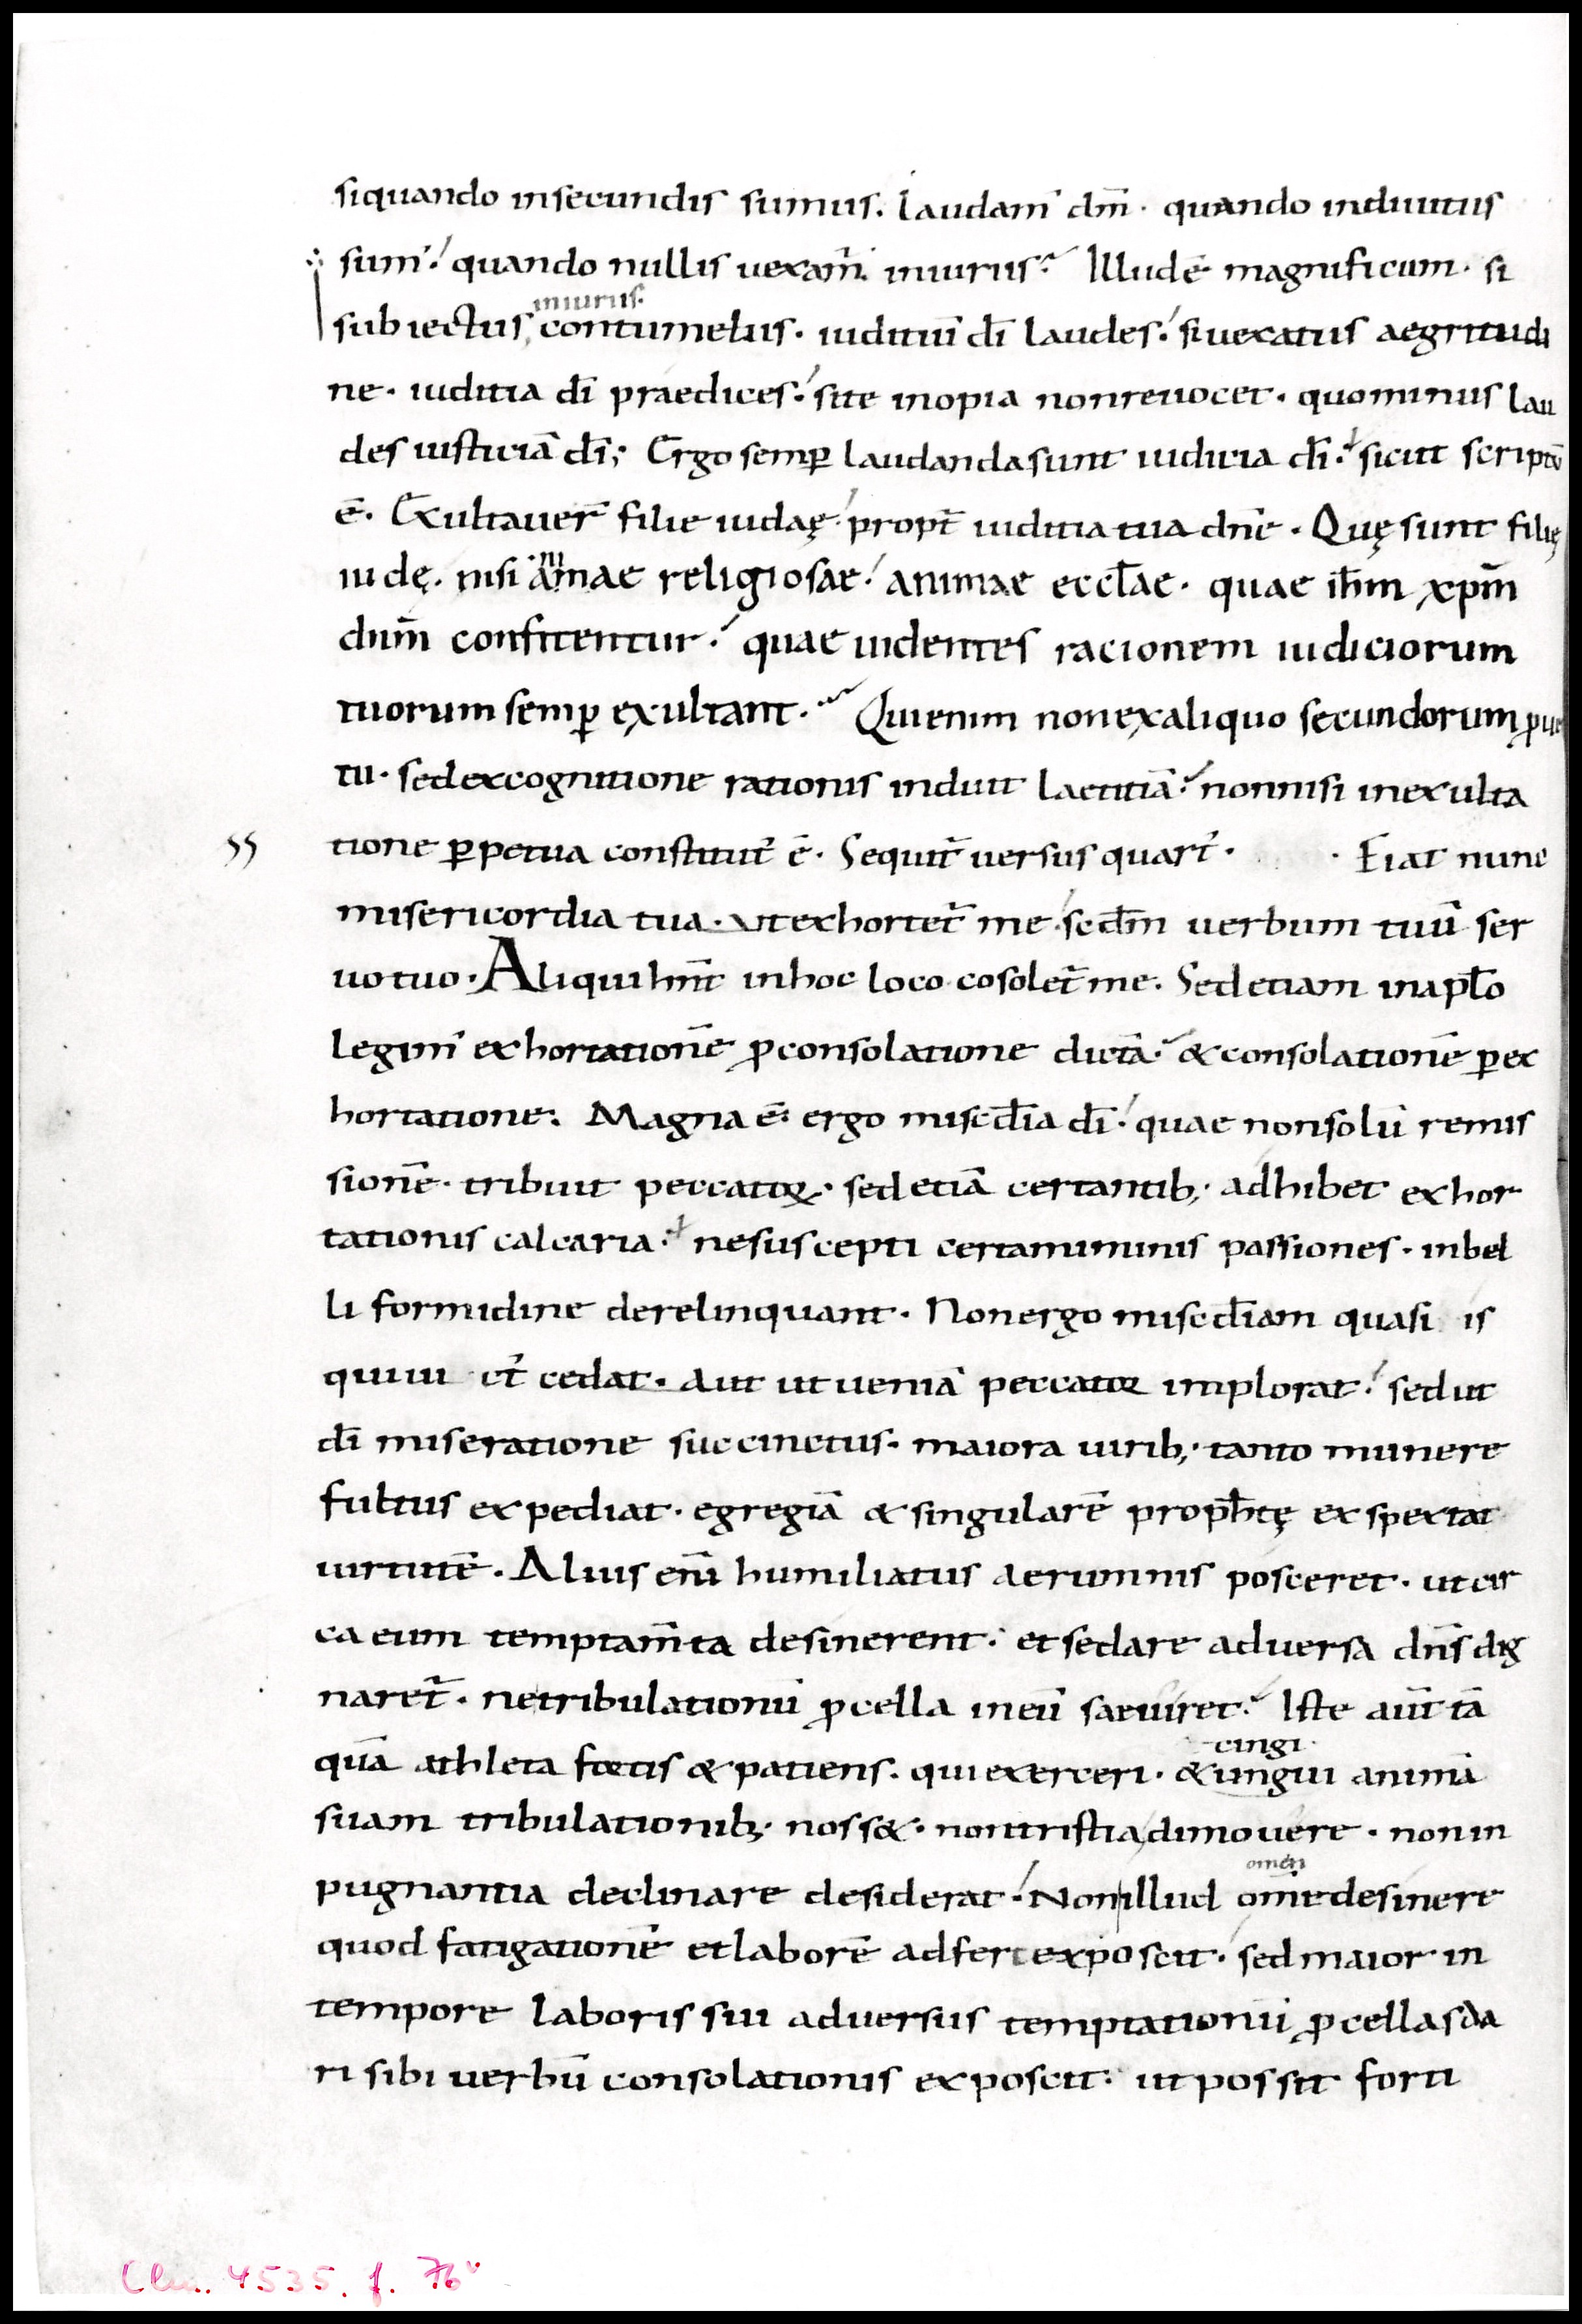 siquando insecundis sumus. Laudam' dm̄. quando indiuitiis
sum'. quando nullis uexam̄. iniuriis. Illudē magnificum. si
iniuriis.
subiectus contumeliis. iuditiū dī laudes. siuexatus aegritudi
ne. iuditia dī praedices. site inopia nonreuocet. quominus lau
des iusticiā dī; Ergo semꝑ laudandasunt iudicia dī. sicut scriptū
ē. Exultauer̄ filie iudaę. propt̄ iuditia tua dn̄e. Quę sunt filię
ni
iudę. nisi amae religiosae. animae eccl̄ae. quae ih̄m xp̄m
dn̄m confitentur. quae uidentes racionem iudiciorum
tuorum semꝑ exultant. Quienim nonexaliquo secundorum ꝓue
tu. sedexcognitione rationis induit laetitiā. nonnisi inexulta
tione ꝑpetua constitut' ē. Sequit̄ uersus quart'. Fiat nunc
misericordia tua. utexhortet̄ me. sedm̄ uerbum tuū ser
uotuo. Aliquihn̄t inhoc loco cosolet̄me. Sedetiam inapl̄o
legim' exhortationē ꝓconsolatione dictā. &consolationē ꝑex
hortatione. Magna ē. ergo misc̄dia dī. quae nonsolū remis
sionē. tribuit peccatoꝝ. sedetiā certantib;. adhibet exhor
tationis calcaria. nesuscepti certamuminis passiones. inbel
li formidine derelinquant. Nonergo misc̄diam quasi is
quiui ct̄ cedat. aut ut ueniā peccatoꝝ implorat. sedut
dī miseratione succinctus. maiora uirib;. tanto munere
fultus expediat. egregiā & singularē proph̄tę exspectat
uirtutē. Alius enī humiliatus aerumnis posceret. utcir
ca eum temptam̄ta desinerent. et sedare aduersa dn̄s dig
naret̄. netribulationū ꝓcella ineū saeuiret. Iste aut̄ tā
cingi.
quā athleta fortis & patiens. quiexerceri. & ungui animā
suam tribulationib;. noss&. nontristia dimouere. nonin
omen
pugnantia declinare desiderat. Nonillud omn̄edesinere
quod fatigationē etlaborē adfert exposcit. sedmaior in
tempore laboris sui aduersus temptationū ꝓcellas da
ri sibi uerbū consolationis exposcit. utpossit forti
Clm. 4535. f. 76v